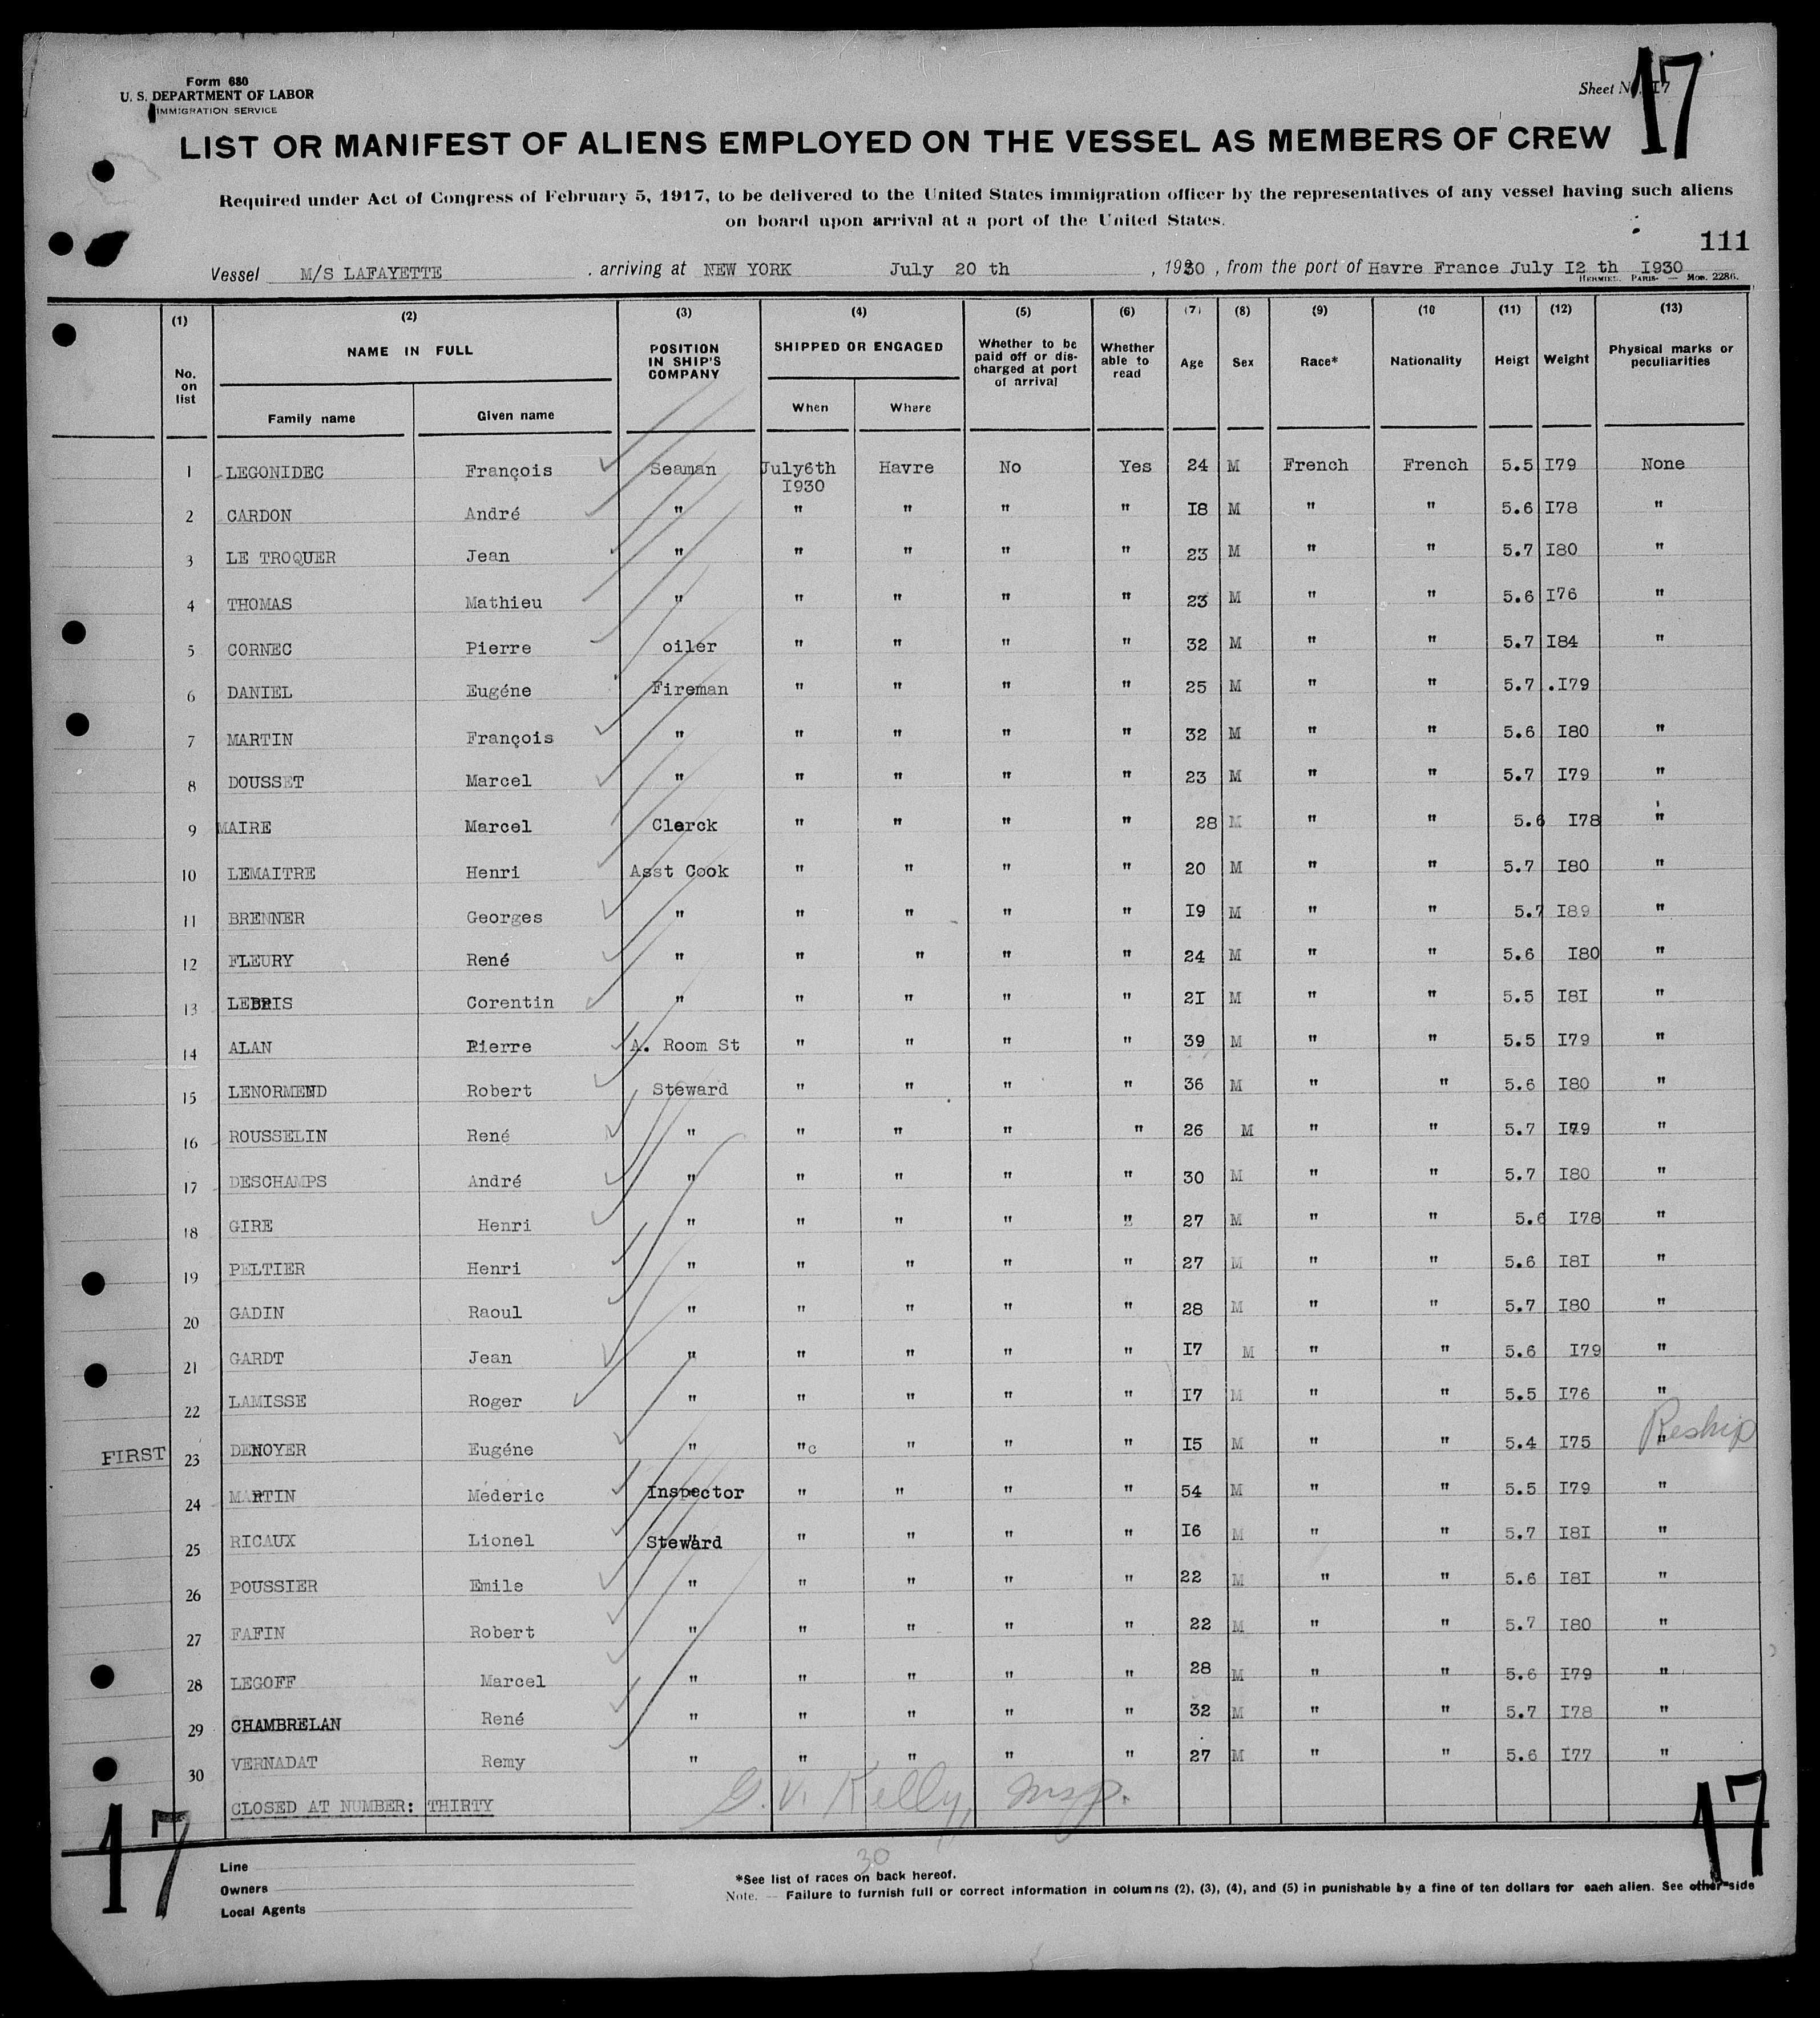 Form 680
U. S. DEPARTMENT OF LABOR
IMMIGRATION SERVICE
Sheet No. I7
17
LIST OR MANIFEST OF ALIENS EMPLOYED ON THE VESSEL AS MEMBERS OF CREW
Required under Act of Congress of February 5, 1917, to be delivered to the United States immigration officer by the representatives of any vessel having such aliens
on board upon arrival at a port of the United States.
111
Vessel M/S LAFAYETTE , arriving at NEW YORK July 20 th , 1930 , from the port of Havre France July I2 th I930
HERMIEU. PARIS- — Mod. 2286.
(1) (2) (3) (4) (5) (6) (7) (8) (9) (10 (11) (12) (13)
No. on list NAME IN FULL POSITION IN SHIP'S COMPANY SHIPPED OR ENGAGED Whether to be paid off or discharged at port of arrival Whether able to read Age Sex Race* Nationality Heigt Weight Physical marks or peculiarities
Family name Given name When Where
1 LEGONIDEC François Seaman July6th I930 Havre No Yes 24 M French French 5.5 I79 None
2 CARDON André " " " " " I8 M " " 5.6 I78 "
3 LE TROQUER Jean " " " " " 23 M " " 5.7 I80 "
4 THOMAS Mathieu " " " " " 23 M " " 5.6 I76 "
5 CORNEC Pierre oiler " " " " 32 M " " 5.7 I84 "
6 DANIEL Eugéne Fireman " " " " 25 M " " 5.7 .I79
7 MARTIN François " " " " " 32 M " " 5.6 I80 "
8 DOUSSET Marcel " " " " " 23 M " " 5.7 I79 "
9 MAIRE Marcel Clerck " " " " 28 M " " 5.6 I78 "
10 LEMAITRE Henri Asst Cook " " " " 20 M " " 5.7 I80 "
11 BRENNER Georges " " " " " I9 M " " 5.7 I89 "
12 FLEURY René " " " " " 24 M " " 5.6 I80 "
13 LEBRIS Corentin " " " " " 2I M " " 5.5 I8I "
14 ALAN Pierre A. Room St " " " " 39 M " " 5.5 I79 "
15 LENORMEND Robert Steward " " " " 36 M " " 5.6 I80 "
16 ROUSSELIN René " " " " " 26 M " " 5.7 I79 "
17 DESCHAMPS André " " " " " 30 M " " 5.7 I80 "
18 GIRE Henri " " " " " 27 M " " 5.6 I78 "
19 PELTIER Henri " " " " " 27 M " " 5.6 I8I "
20 GADIN Raoul " " " " " 28 M " " 5.7 I80 "
21 GARDT Jean " " " " " I7 M " " 5.6 I79 "
22 LAMISSE Roger " " " " " I7 M " " 5.5 I76 "
FIRST 23 DENOYER Eugéne " "c " " " I5 M " " 5.4 I75 " Reship
24 MARTIN Méderic Inspector " " " " 54 M " " 5.5 I79 "
25 RICAUX Lionel Steward " " " " I6 M " " 5.7 I8I "
26 POUSSIER Emile " " " " " 22 M " " 5.6 I8I "
27 FAFIN Robert " " " " " 22 M " " 5.7 I80 "
28 LEGOFF Marcel " " " " " 28 M " " 5.6 I79 "
29 CHAMBRELAN René " " " " " 32 M " " 5.7 I78 "
30 VERNADAT Remy " " " " " 27 M " " 5.6 I77 "
CLOSED AT NUMBER: THIRTY
G. V. Kelly, Insp.
17
17
30
Line
Owners
Local Agents
*See list of races on back hereof.
Note. — Failure to furnish full or correct information in columns (2), (3), (4), and (5) in punishable by a fine of ten dollars for each alien. See other side